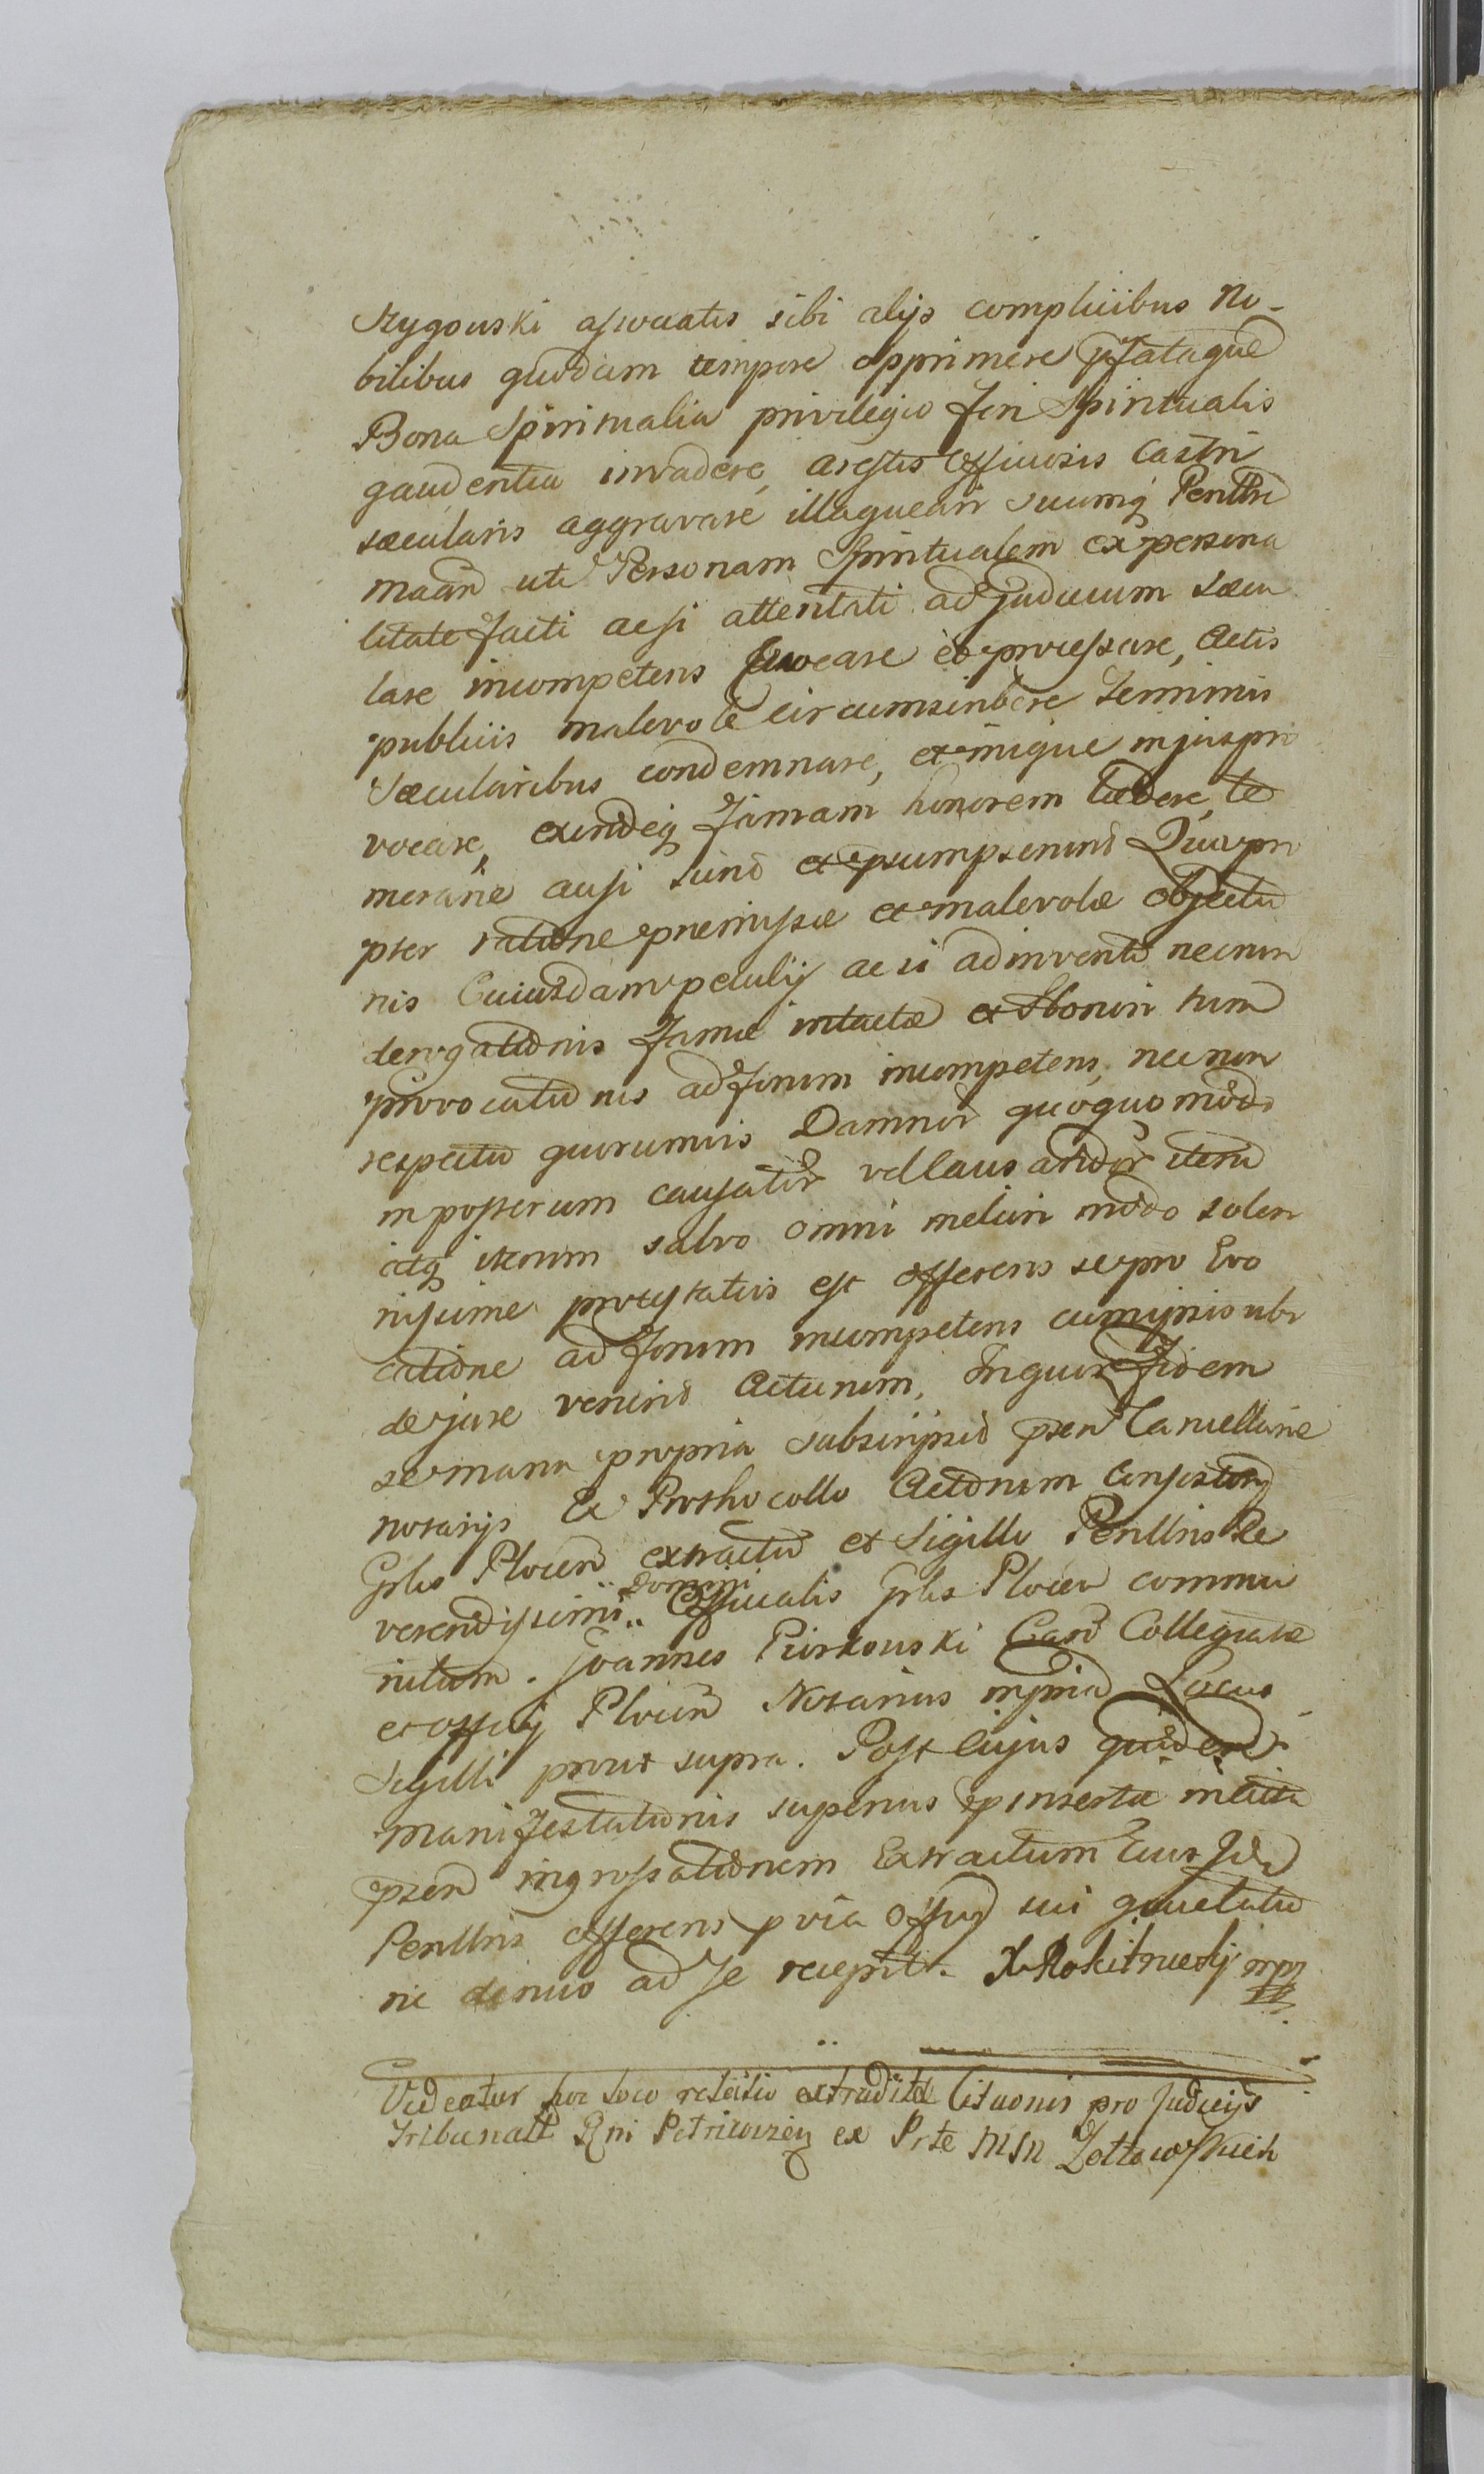 associatis sibi alijs complicibus No-
bilibus quodam tempore opprimere pfataque
Bona Spiritualia privilegio Fori Spiritualis
gaudentia invadere, arestis officiosis Castri
sæcularis aggravare illaqueari suumq Penllre
mand uti Personam Spiritualem ex persona
litate facti acsi attentati ad Judicium sæcu
lare incompetens evocare et processare, Actis
publicis malevole circumscribere Terminis
Sæcularibus condemnare, et inique in jus pro
vocare, exindeq Famam honorem lædere, te
merarie ausi sunt et psumpserunt Quapro
pter ratione præmissæ et malevolæ objectio
nis Cuiusdam peculij acsi adinventi necnon
derogationis Famæ intactæ et Honori tum
provocationis ad Forum incompetens, nec non
respectu quorumvis Damnor quoquo modo
in posterum causator vel causandor iterum
atq iterum salvo omni meliori modo solen
nissime protestatus est offerens se pro Evo
catione ad Forum incompetens cum ipsis ubi
de jure venerit Acturum, In quor Fidem
se manu propria subscripsit psen Cancellariæ
notarijs Ex Prothocollo Actorum Consistorij
Gnlis Plocen extractum et Sigillo Penllris Re
verendissimi Domini Officialis Gnlis Plocen commu
nitum. Joannes Piorkowski Can Collegiatæ
et officij Plocen Notarius mppria Locus
Sigilli prout supra. Post cujus quidem
Manifestationis superius insertæ in acta
psen ingrossationem Extractum Eius Idem
Penllris offerens p via Offug sui quietatio
ne denuo ad Se recepit. X. Rokitnicky mpr
Videatur hoc loco relatio extraditæ Citaonis pro Judicijs
Tribunall Rni Petricovien ex Prte MM Zottowskich